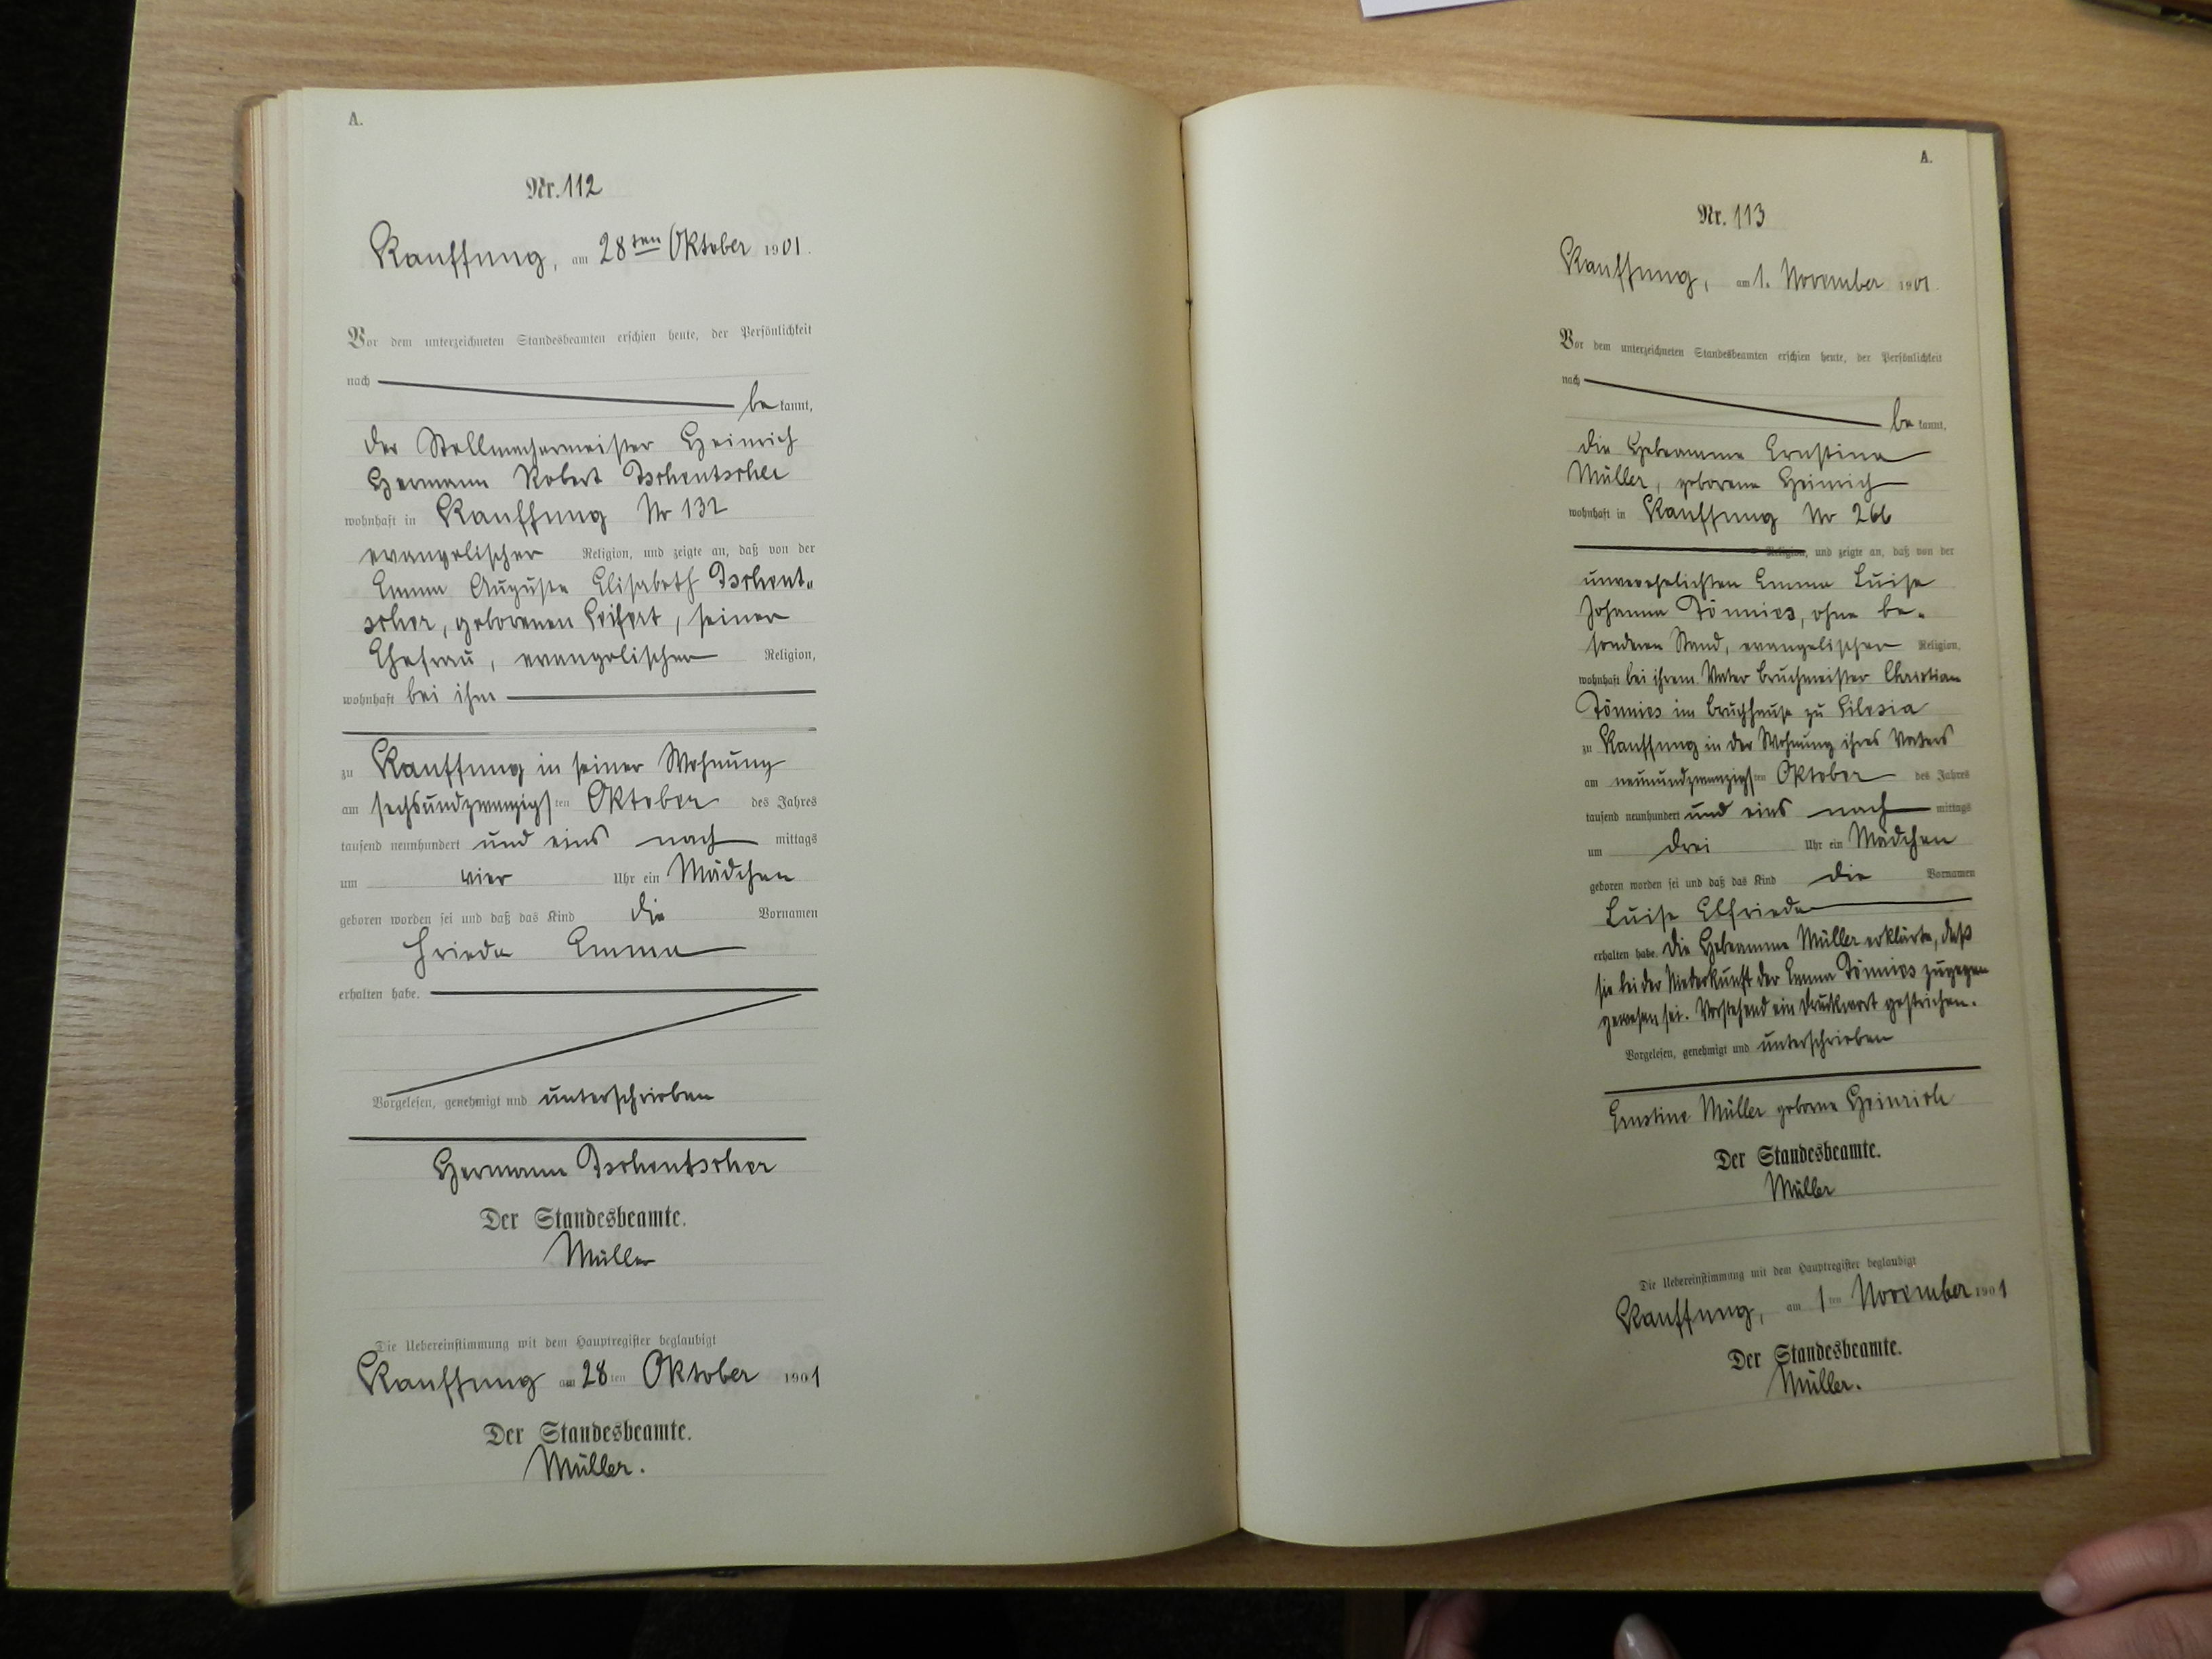 A.
Nr. 112
Kauffung, am 28ten Oktober 1901.
Vor dem unterzeichneten Standesbeamten erschien heute, der Persönlichkeit
nach
be kannt,
der Stellmachermeister Heinrich
Hermann Robert Tschentscher
wohnhaft in Kauffung Nr 132
evangelischer Religion, und zeigte an, daß von der
Emma Auguste Elisabeth Tschent-
scher, geborenen Seifert, seiner
Ehefrau, evangelischer Religion,
wohnhaft bei ihm
zu Kauffung in seiner Wohnung
am sechsundzwanzigsten Oktober des Jahres
tausend neunhundert und eins nach mittags
um vier Uhr ein Mädchen
geboren worden sei und daß das Kind die Vornamen
Frieda Emma
erhalten habe.
Vorgelesen, genehmigt und unterschrieben
Hermann Tschentscher
Der Standesbeamte.
Müller
Die Uebereinstimmung mit dem Hauptregister beglaubigt
Kauffung am 28ten Oktober 1901
Der Standesbeamte.
Müller.
A.
Nr. 113
Kauffung, am 1. November 1901.
Vor dem unterzeichneten Standesbeamten erschien heute, der Persönlichkeit
nach
be kannt,
die Hebeamme Ernstine
Müller, geborene Heinrich
wohnhaft in Kauffung Nr 266
Religion, und zeigte an, daß von der
unverehelichten Emma Luise
Johanna Tönnies, ohne be-
sonderen Stand, evangelischer Religion,
wohnhaft bei ihrem Vater Bruchmeister Christian
Tönnies im Bruchhause zu Silesia
zu Kauffung in der Wohnung ihres Vaters
am neunundzwanzigsten Oktober des Jahres
tausend neunhundert und eins nach mittags
um drei Uhr ein Mädchen
geboren worden sei und daß das Kind die Vornamen
Luise Elfriede
erhalten habe. Die Hebeamme Müller erklärte, daß
sie bei der Niederkunft der Emma Tönnies zugegen
gewesen sei. Vorstehend ein Druckwort gestrichen.
Vorgelesen, genehmigt und unterschrieben
Ernstine Müller geborne Heinrich
Der Standesbeamte.
Müller
Die Uebereinstimmung mit dem Hauptregister beglaubigt
Kauffung, am 1ten November 1901
Der Standesbeamte.
Müller.